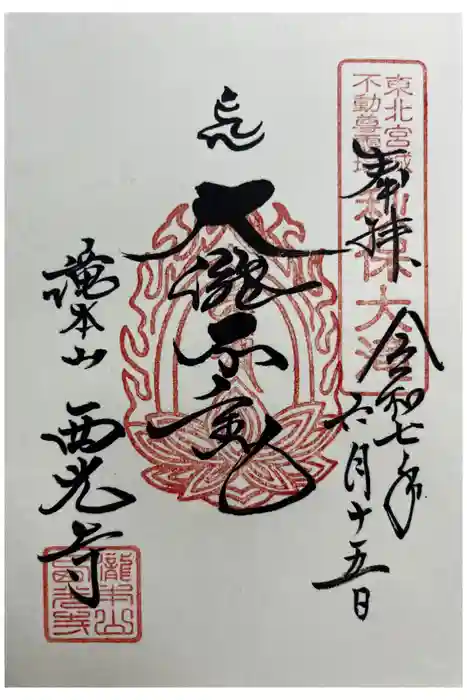 東北宮城
不動尊霊場
秋保大滝
奉拝
令和七年
六月十五日
大瀧不動
滝本山 西光寺
瀧本山
西光寺